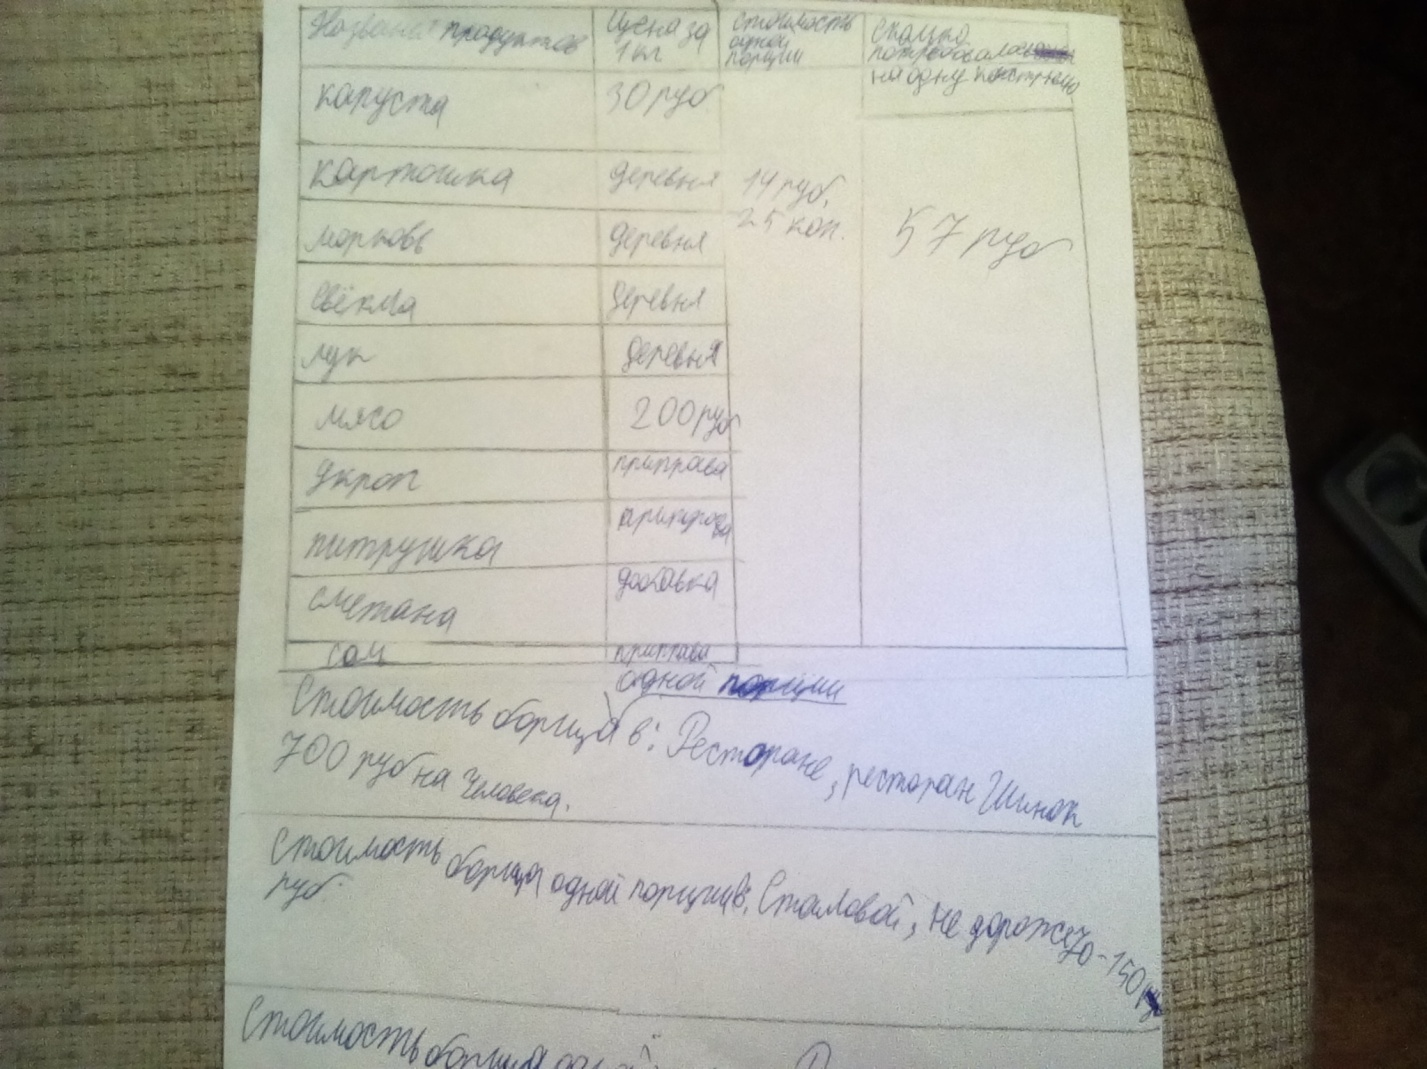 Название продуктов
Цена за
1 кг
стоимость
одной
порции
Сколько
потребовалось
на одну кастрюлю
капуста
30 руб
картошка
деревня
14 руб.
25 коп.
57 руб
морковь
деревня
свёкла
деревня
лук
деревня
мясо
200 руб
укроп
приправа
питрушка
приправа
сметана
добавка
сол
приправа
одной порции
Стоимость борща в: Ресторане, ресторан Шинок
700 руб на человека.
Стоимость борща одной порции в: Столовой, не дороже 70-150
руб.
Стоимость борща одной